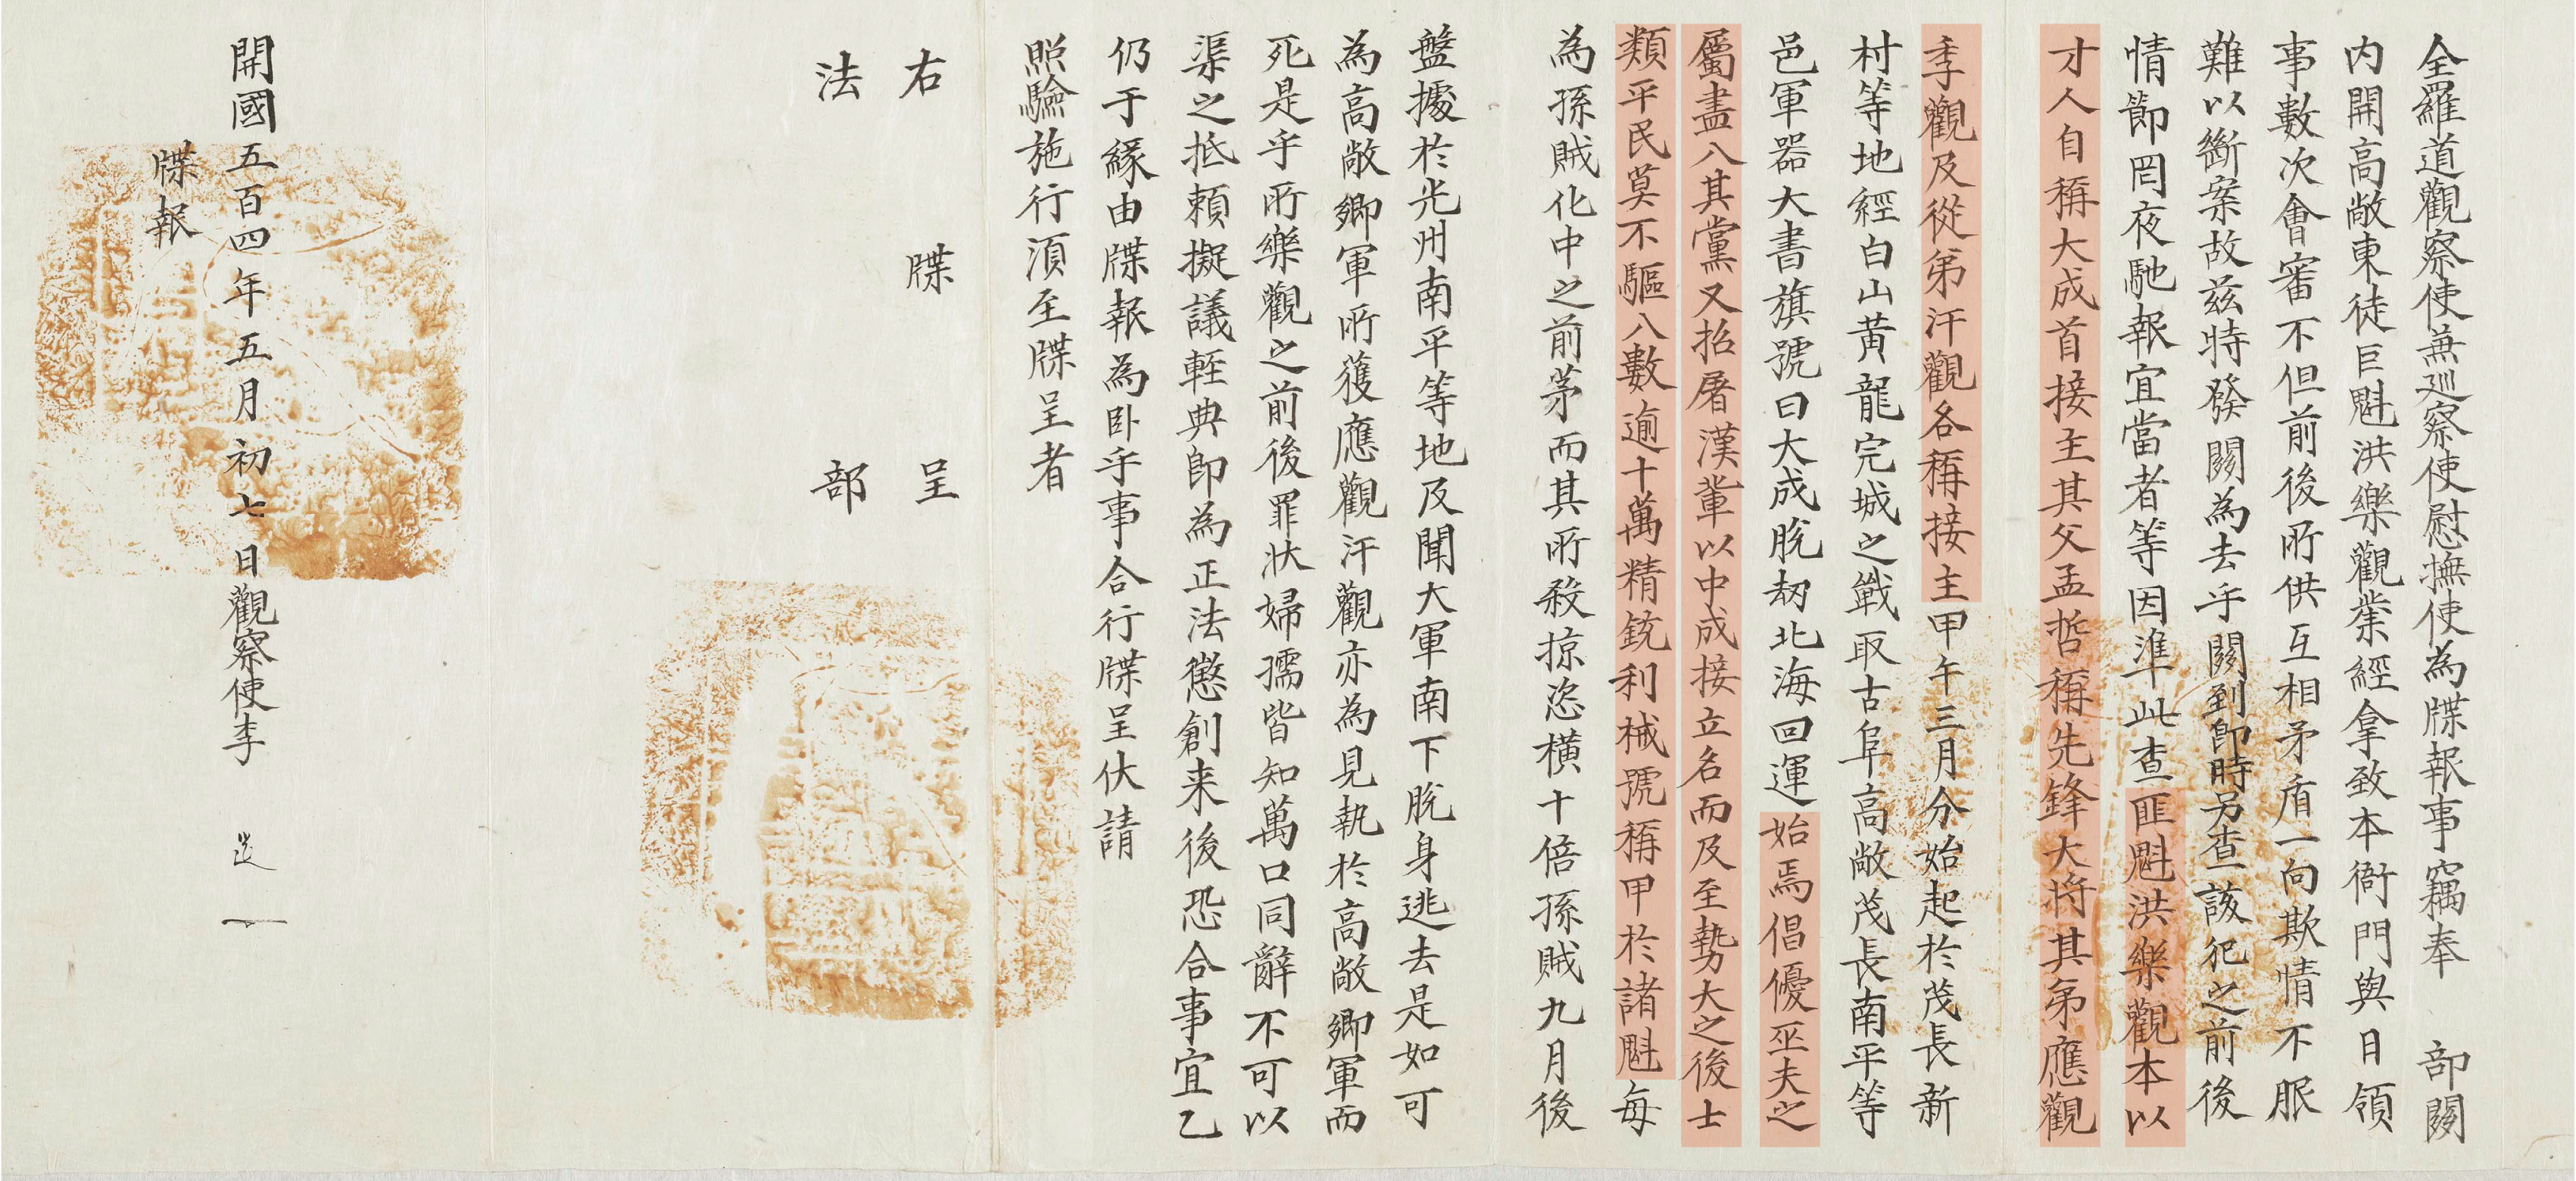 全羅道觀察使兼巡察使慰撫使為牒報事竊奉 部關
內開高敞東徒巨魁洪樂觀業經拿致本衙門與日領
事數次會審不但前後所供互相矛盾一向欺情不服
難以斷案故茲特發關為去乎關到卽時另查該犯之前後
情節罔夜馳報宜當者等因準此查匪魁洪樂觀本以
才人自稱大成首接主其父孟哲稱先鋒大將其弟應觀
季觀及從弟汗觀各稱接主甲午三月分始起於茂長新
村等地經白山黃龍完城之戰取古阜高敞茂長南平等
邑軍器大書旗號曰大成脫刼北海回運始焉倡優巫夫之
屬盡入其黨又招屠漢輩以中成接立名而及至勢大之後士
類平民莫不驅入數逾十萬精銃利械號稱甲於諸魁每
為孫賊化中之前茅而其所殺掠恣橫十倍孫賊九月後
盤據於光州南平等地及聞大軍南下脫身逃去是如可
為高敞鄉軍所獲應觀汗觀亦為見執於高敞鄉軍而
死是乎所樂觀之前後罪狀婦孺皆知萬口同辭不可以
渠之抵賴擬議輕典卽為正法懲創来後恐合事宜乙
仍于緣由牒報為卧乎事合行牒呈伏請
照驗施行須至牒呈者
右 牒 呈
法 部
開國五百四年五月初七日觀察使李
牒報